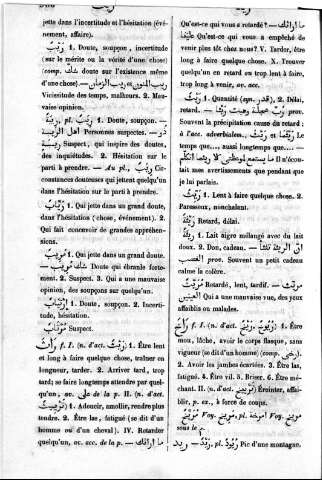 jette dans l'incertitude et l'hésitation (évé-
nement, affaire).
رَيْبٌ 1. Doute, soupçon, incertitude
(sur le mérite ou la vérité d'une chose)
(comp. شك doute sur l'existence même
d'une chose).— رَيْبُ المَنُون et رَيْبُ الزمان
Vicissitude des temps, malheurs. 2. Mau-
vaise opinion.
رِيبَةٌ pl. رِيَبٌ 1. Doute, soupçon. —
اهل الريبة Personnes suspectes. — ذو
رِيبة Suspect, qui inspire des doutes,
des inquiétudes. 2. Hésitation sur le
parti à prendre. — Au pl. رِيَبٌ Cir-
constances douteuses qui jettent quelqu'un
dans l'hésitation sur le parti à prendre.
رَيَّابٌ 1. Qui jette dans un grand doute,
dans l'hésitation (chose, événement). 2.
Qui fait concevoir de grandes appréhen-
sions.
مُرِيبٌ 1. Qui jette dans un grand doute.
شكّ مُرِيب Doute qui ébranle forte-
ment. 2. Suspect. 3. Qui a une mauvaise
opinion, des soupçons sur quelqu'un.
اِرْتِيَابٌ 1. Doute, soupçon. 2. Incerti-
tude, hésitation.
مُرْتَابٌ Suspect.
رَاثَ f. I. (n. d'act. رَيْثٌ) 1. Être lent
et long à faire quelque chose, traîner en
longueur, tarder. 2. Arriver tard, trop
tard; se faire longtemps attendre par quel-
qu'un, av. على de la p. II. (n. d'act.
تَرْيِيثٌ) 1. Adoucir, amollir, rendre plus
tendre. 2. Être las, fatigué (se dit d'un
homme ou d'un cheval). IV. Retarder
quelqu'un, av. acc. de la p. — ما اراثك
Qu'est-ce qui vous a retardé? — ما اراثك
علينا Qu'est-ce qui vous a empêché de
venir plus tôt chez nous? V. Tarder, être
long à faire quelque chose. X. Trouver
quelqu'un en retard ou trop lent à faire,
trop long à venir, av. acc.
رَيْثٌ 1. Quantité (syn. قدر). 2. Délai,
retard. — رُبَّ عجلة وهبت رَيْثًا prov.
Souvent la précipitation cause du retard:
à l'acc. adverbialem., رَيْثَ et رَيْثَمَا Le
temps que.... aussi longtemps que.... —
ما يستمع لموعظتي الا ريثما اتكلم Il n'écou-
tait mes avertissements que pendant que
je lui parlais.
رَيِّثٌ 1. Lent à faire quelque chose. 2.
Paresseux, nonchalant.
رِيثَةٌ Retard, délai.
رَثِيئَةٌ 1. Lait aigre mélangé avec du lait
doux. 2. Don, cadeau. — ان الرثيئة تفثأ
الغضب prov. Souvent un petit cadeau
calme la colère.
مُرَيَّثٌ Retardé, lent, tardif. — مُرَيَّث
العينين Qui a une mauvaise vue, des yeux
affaiblis ou malades.
f. I. (n. d'act. رُيُوخٌ, رَيْخٌ) 1. Être
mou, lâche, avoir le corps flasque, sans
vigueur (se dit d'un homme) (comp. رخى).
2. Avoir les jambes écartées. 3. Être las,
fatigué. 4. Être vil. 5. Briser. 6. Être mé-
chant. II. (n. d'act. تَرْيِيخٌ) Éreinter, affai-
blir, p. ex., à force de coups.
sous le م
رَيْدٌ, pl. رُيُودٌ Pic d'une montagne.